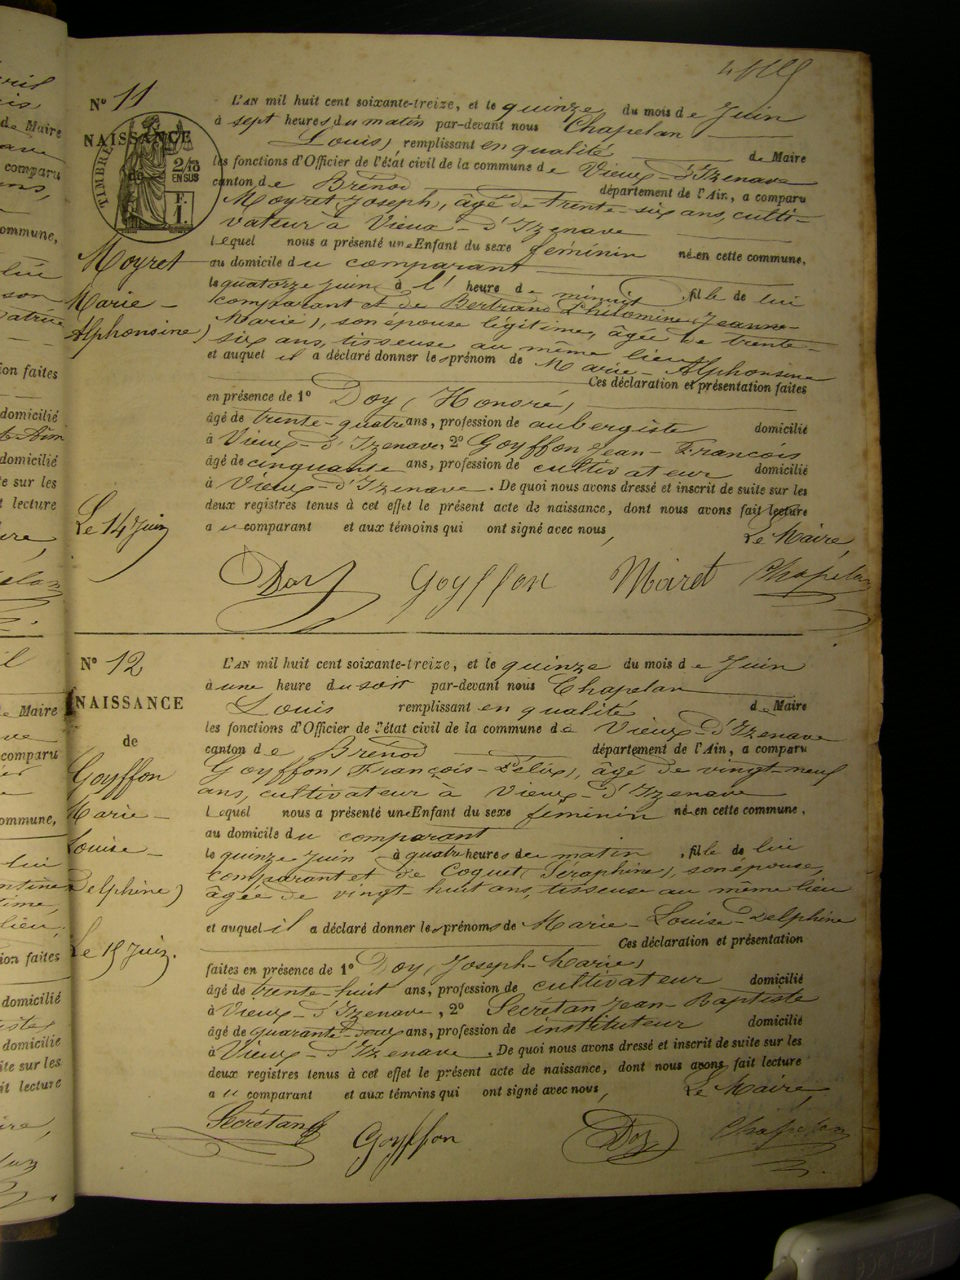 N° 11
NAISSANCE
de
TIMBRE
2/10
EN SUS
F.
1.
Moyret
Marie –
Alphonsine)
Le 14 Juin
L'AN mil huit cent soixante-treize, et le quinze du mois de Juin
à sept heures du matin par-devant nous Chapelan
Louis, remplissant en qualité de Maire
les fonctions d'Officier de l'état civil de la commune de Vieux-d'Izenave
canton de Brénod département de l'Ain, a comparu
Moyret Joseph, âgé de trente-six ans, culti-
vateur à Vieux-d'Izenave
Lequel nous a présenté un Enfant du sexe féminin né en cette commune,
au domicile du comparant
le quatorze juin à l' heure de minuit, fille de lui
comparant et de Bertrand Philomine Jeanne-
Marie), son épouse légitime, âgée de trente-
six ans, tisseuse au même lieu
et auquel il a déclaré donner le prénom de Marie-Alphonsine
Ces déclaration et présentation faites
en présence de 1° Doy (Honoré)
âgé de trente-quatre ans, profession de aubergiste domicilié
à Vieux-d'Izenave, 2° Goyffon Jean-François
âgé de cinquante ans, profession de cultivateur domicilié
à Vieux-d'Izenave. De quoi nous avons dressé et inscrit de suite sur les
deux registres tenus à cet effet le présent acte de naissance, dont nous avons fait lecture
au comparant et aux témoins qui ont signé avec nous,
Le Maire,
Doy Goyffon Moiret Chapelan
N° 12
NAISSANCE
de
Goyffon
Marie –
Louise –
Delphine)
Le 15 Juin.
L'AN mil huit cent soixante-treize, et le quinze du mois de Juin
à une heure du soir par-devant nous Chapelan
Louis remplissant en qualité de Maire
les fonctions d'Officier de l'état civil de la commune de Vieux-d'Izenave
canton de Brénod département de l'Ain, a comparu
Goyffon (François-Félix), âgé de vingt-neuf
ans, cultivateur à Vieux-d'Izenave
Lequel nous a présenté un Enfant du sexe féminin né en cette commune,
au domicile du comparant
le quinze Juin à quatre heures du matin, fille de lui
comparant et de Coquet (Séraphine), son épouse,
âgée de vingt-huit ans, tisseuse au même lieu
et auquel il a déclaré donner les prénoms de Marie-Louise-Delphine
Ces déclaration et présentation
faites en présence de 1° Doy (Joseph-Marie)
âgé de trente-huit ans, profession de cultivateur domicilié
à Vieux-d'Izenave, 2° Secrétan Jean-Baptiste
âgé de quarante-deux ans, profession de instituteur domicilié
à Vieux-d'Izenave. De quoi nous avons dressé et inscrit de suite sur les
deux registres tenus à cet effet le présent acte de naissance, dont nous avons fait lecture
au comparant et aux témoins qui ont signé avec nous,
Le Maire,
Secrétan Goyffon Doy Chapelan